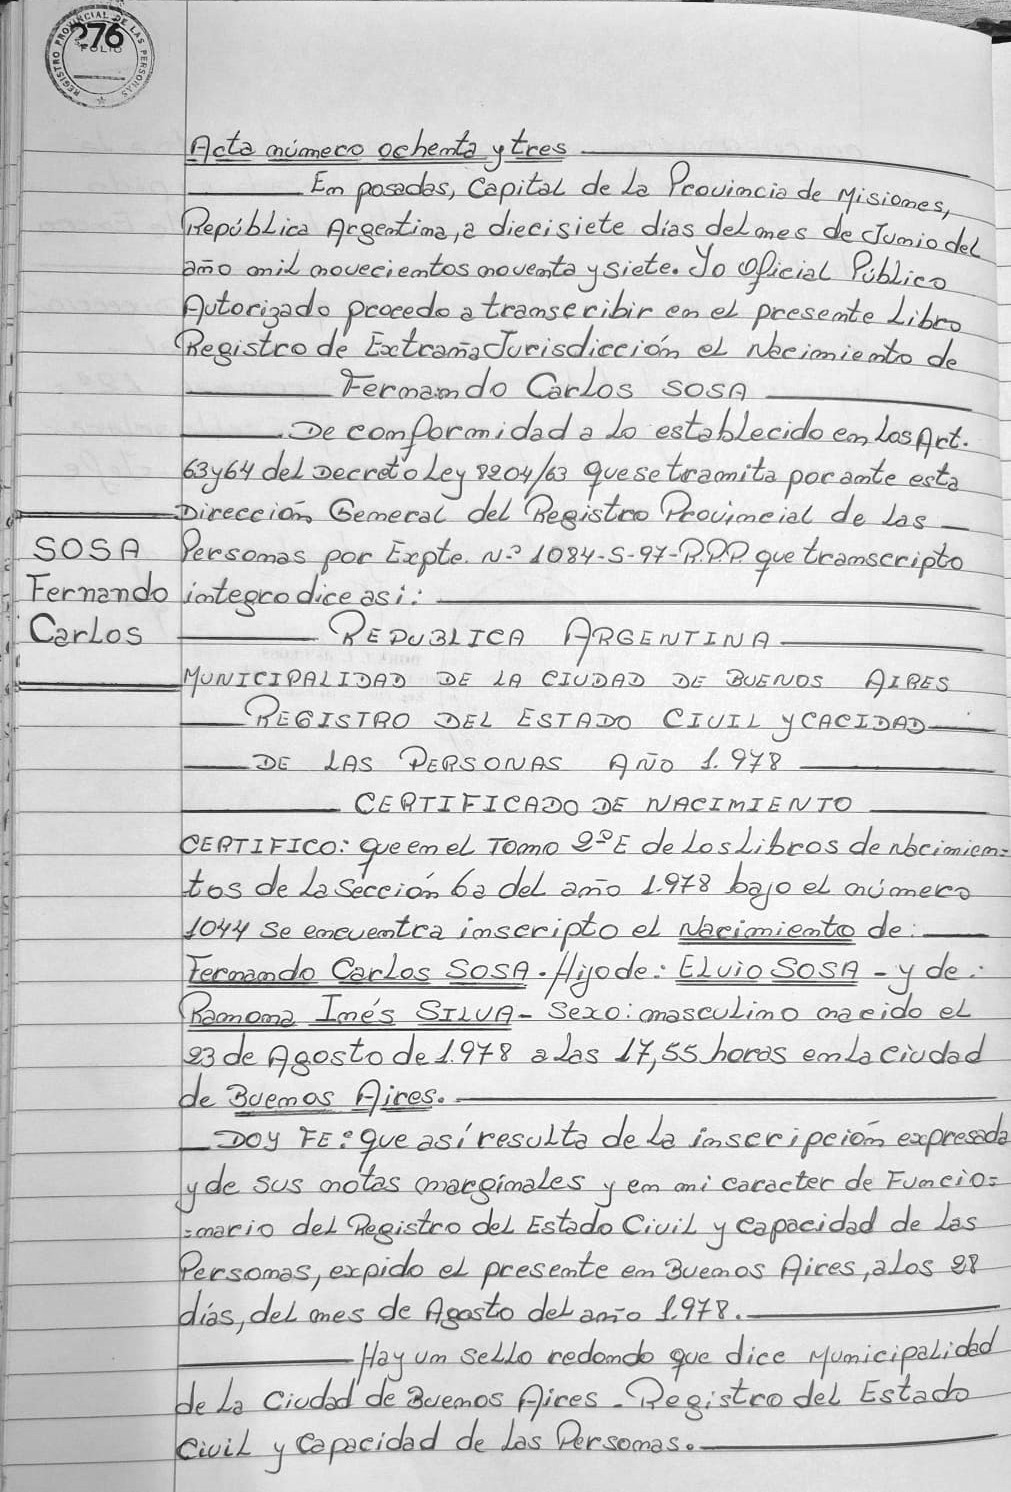 REGISTRO PROVINCIAL DE LAS PERSONAS
276
FOLIO
Acta número ochenta y tres
En posadas, Capital de La Provincia de Misiones,
República Argentina, a diecisiete días del mes de Junio del
año mil novecientos noventa y siete. Yo Oficial Público
Autorizado procedo a transcribir en el presente Libro
Registro de Extraña Jurisdicción el Nacimiento de
Fernando Carlos SOSA
De conformidad a lo establecido en Los Art.
63 y 64 del Decreto Ley 8204/63 que se tramita por ante esta
Dirección General del Registro Provincial de las
Personas por Expte. Nº 1084-S-97-R.P.P. que transcripto
integro dice asi:
SOSA
Fernando
Carlos
REPUBLICA ARGENTINA
MUNICIPALIDAD DE LA CIUDAD DE BUENOS AIRES
REGISTRO DEL ESTADO CIVIL Y CACIDAD
DE LAS PERSONAS AÑO 1.978
CERTIFICADO DE NACIMIENTO
CERTIFICO: que en el Tomo 2º E de Los Libros de nacimien=
tos de La Sección 6a del año 1.978 bajo el número
1044 se encuentra inscripto el Nacimiento de:
Fernando Carlos SOSA. Hijo de: ELvio SOSA - y de:
Ramona Inés SILVA - Sexo: masculino nacido el
23 de Agosto de 1.978 a las 17,55 horas en La ciudad
de Buenos Aires.
DOY FE: que así resulta de La inscripción expresada
y de sus notas marginales y en mi caracter de Funcio=
=nario del Registro del Estado Civil y capacidad de las
Personas, expido el presente en Buenos Aires, a los 28
días, del mes de Agosto del año 1.978.
Hay un sello redondo que dice Municipalidad
de La Ciudad de Buenos Aires - Registro del Estado
Civil y Capacidad de las Personas.